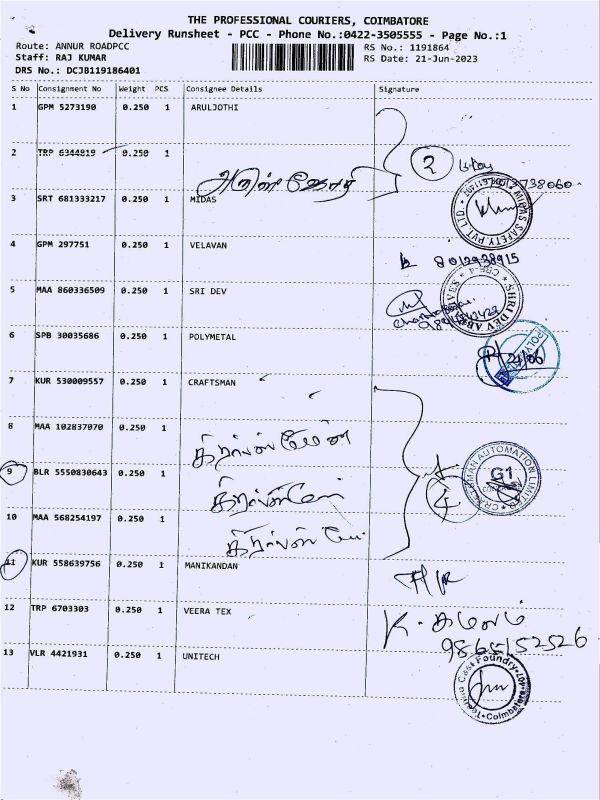 THE PROFESSIONAL COURIERS, COIMBATORE
Delivery Runsheet - PCC - Phone No.:0422-3505555 - Page No.:1
Route: ANNUR ROADPCC
RS No.: 1191864
Staff: RAJ KUMAR
RS Date: 21-Jun-2023
DRS No.: DCJB119186401
S No Consignment No Weight PCS Consignee Details Signature
1 GPM 5273190 0.250 1 ARULJOTHI
2 TRP 6344819 0.250 1
2
அருள் ஜோதி
3 SRT 681333217 0.250 1 MIDAS
MIDAS SAFETY PVT. LTD.
4 GPM 297751 0.250 1 VELAVAN
8012938915
5 MAA 860336509 0.250 1 SRI DEV
6 SPB 30035686 0.250 1 POLYMETAL
21/06
7 KUR 530009557 0.250 1 CRAFTSMAN
8 MAA 102837070 0.250 1
9 BLR 5550830643 0.250 1
CRAFTSMAN AUTOMATION LIMITED
G1
4
10 MAA 568254197 0.250 1
11 KUR 558639756 0.250 1 MANIKANDAN
12 TRP 6703303 0.250 1 VEERA TEX
K. கமலம்
9865152526
13 VLR 4421931 0.250 1 UNITECH
Cast Foundry
Coimbatore